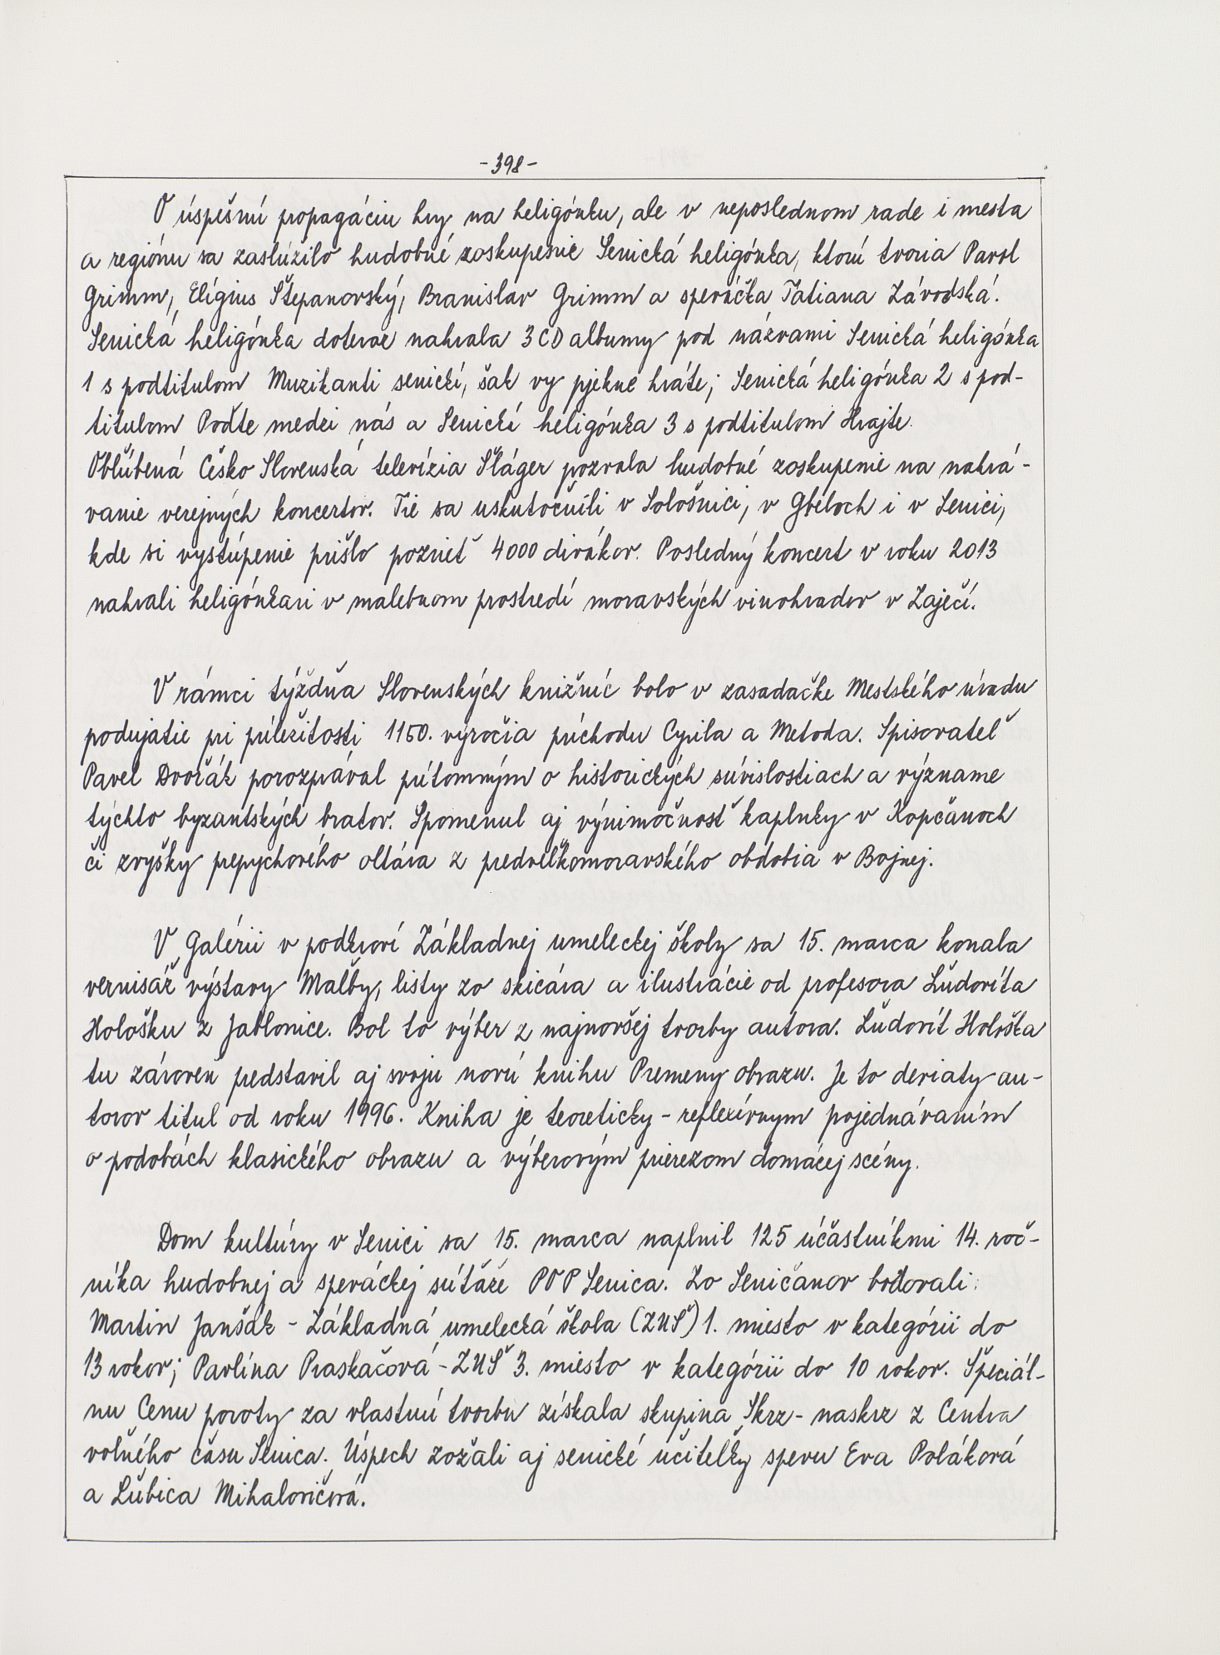 -398-
O úspešnú propagáciu hry na heligónku, ale v neposlednom rade i mesta
a regiónu sa zaslúžilo hudobné zoskupenie Senická heligónka, ktorú tvoria Pavol
Grimm, Elígius Štepanovský, Branislav Grimm a speváčka Tatiana Závodská.
Senická heligónka doteraz nahrala 3 CD albumy pod názvami Senická heligónka
1 s podtitulom Muzikanti senickí, šak vy pjekne hráte; Senická heligónka 2 s pod-
titulom Poďte medzi nás a Senická heligónka 3 s podtitulom Hrajte.
Obľúbená Česko Slovenská televízia Šláger pozvala hudobné zoskupenie na nahrá-
vanie verejných koncertov. Tie sa uskutočnili v Sološnici, v Gbeloch i v Senici,
kde si vystúpenie prišlo pozrieť 4000 divákov. Posledný koncert v roku 2013
nahrali heligónkari v malebnom prostredí moravských vinohradov v Zaječí.
V rámci týždňa Slovenských knižníc bolo v zasadačke Mestského úradu
podujatie pri príležitosti 1150. výročia príchodu Cyrila a Metoda. Spisovateľ
Pavel Dvořák porozprával prítomným o historických súvislostiach a význame
týchto byzantských bratov. Spomenul aj výnimočnosť kaplnky v Kopčanoch
či zvyšky prepychového oltára z predveľkomoravského obdobia v Bojnej.
V Galérii v podkroví Základnej umeleckej školy sa 15. marca konala
vernisáž výstavy Maľby, listy zo skicára a ilustrácie od profesora Ľudovíta
Hološku z Jablonice. Bol to výber z najnovšej tvorby autora. Ľudovít Hološka
tu zároveň predstavil aj svoju novú knihu Premeny obrazu. Je to deviaty au-
torov titul od roku 1996. Kniha je teoreticky-reflexívnym pojednávaním
o podobách klasického obrazu a výberovým prierezom domácej scény.
Dom kultúry v Senici sa 15. marca naplnil 125 účastníkmi 14. roč-
níka hudobnej a speváckej súťaže POP Senica. Zo Seničanov bodovali:
Martin Janšák - Základná umelecká škola (ZUŠ) 1. miesto v kategórii do
13 rokov; Pavlína Praskačová - ZUŠ 3. miesto v kategórii do 10 rokov. Špeciál-
nu Cenu poroty za vlastnú tvorbu získala skupina Skrz-naskrz z Centra
voľného času Senica. Úspech zožali aj senické učiteľky spevu Eva Poláková
a Ľubica Mihalovičová.